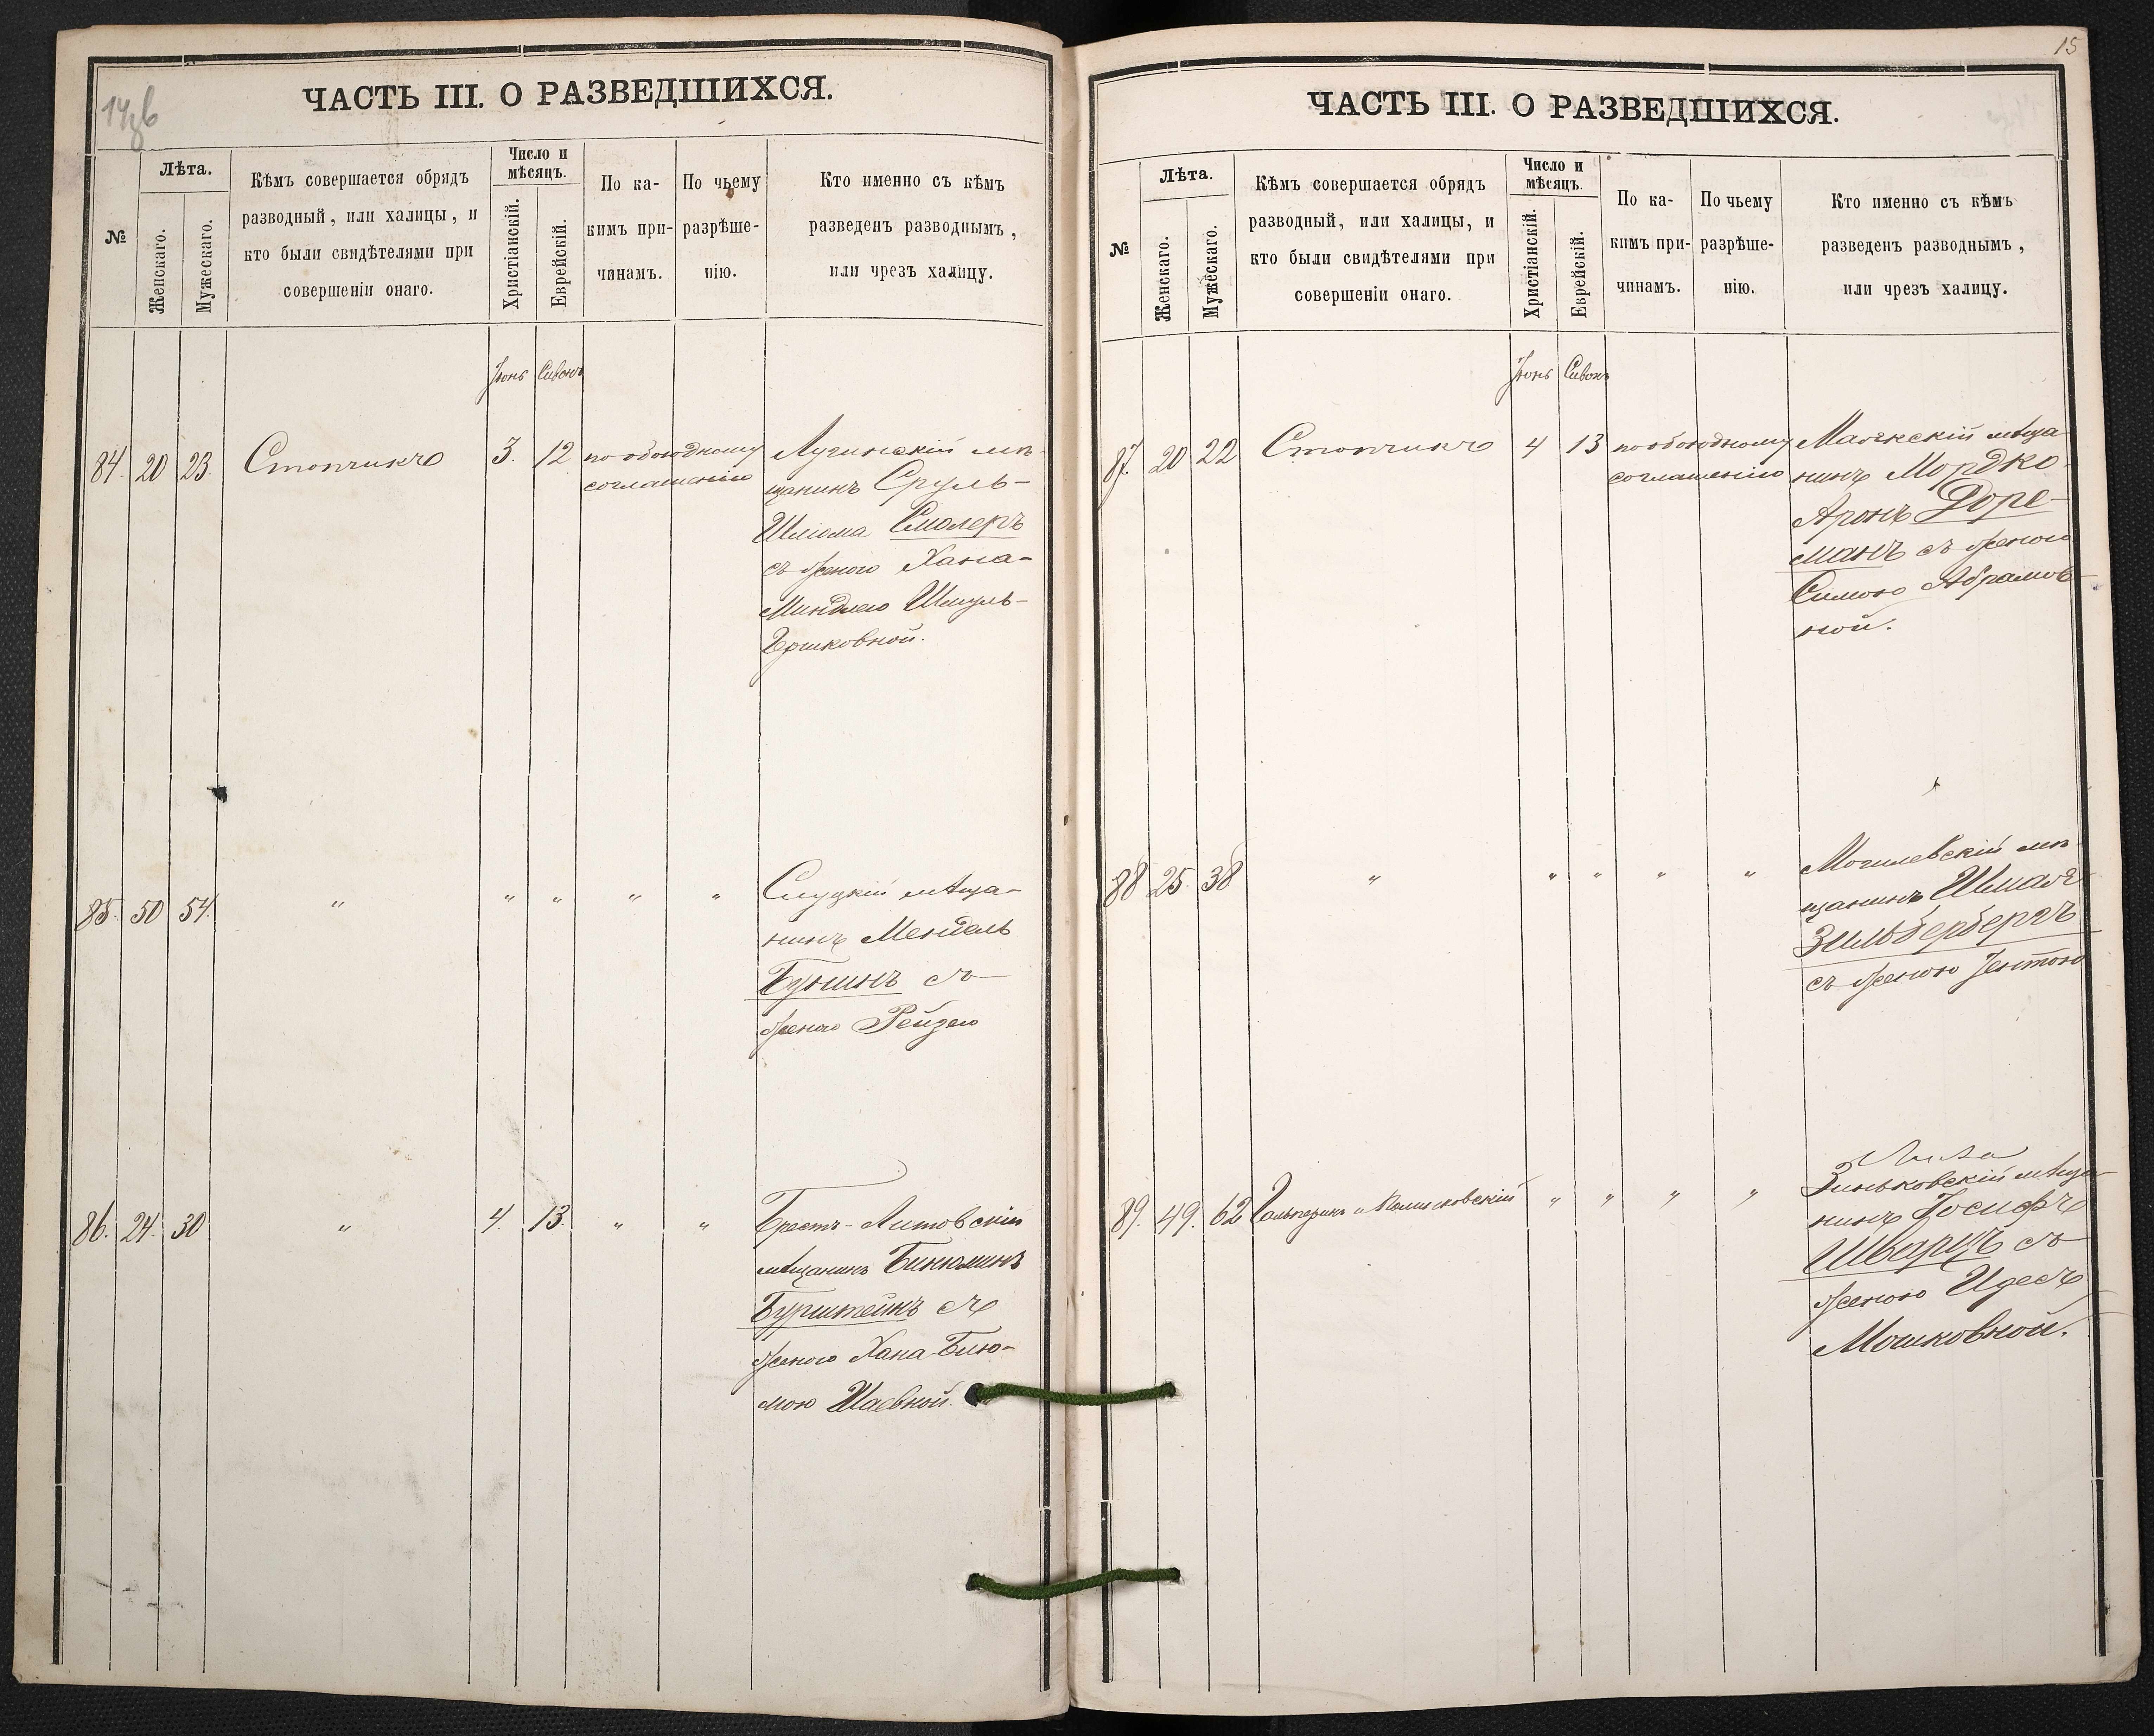 14зв
ЧАСТЬ III. О РАЗВЕДШИХСЯ.
№
Лѣта.
Женскаго.
Мужескаго.
Кѣмъ совершается обрядъ
разводный, или халицы, и
кто были свидѣтелями при
совершеніи онаго.
Число и
мѣсяцъ.
Христіанскій.
Еврейскій.
По ка-
кимъ при-
чинамъ.
По чьему
разрѣше-
нію.
Кто именно съ кѣмъ
разведенъ разводнымъ,
или чрезъ халицу.
Іюнь Сивонъ
84. 20 23. Столчикъ 3. 12 по обоюдному
соглашенію
Лугинскій мѣ-
щанинъ Сруль-
Шлиома Смолеръ
съ женою Хана-
Миндлею Шмуль-
Гершковной.
85. 50 54. " " " " "
Слуцкій мѣща-
нинъ Мендель
Бунинъ съ
женою Рейзею
86. 24. 30 " 4. 13. " "
Брестъ-Литовскій
мѣщанинъ Бинюминъ
Бурштейнъ съ
женою Хана-Блю-
мою Шаевной.
15
ЧАСТЬ III. О РАЗВЕДШИХСЯ.
№
Лѣта.
Женскаго.
Мужескаго.
Кѣмъ совершается обрядъ
разводный, или халицы, и
кто были свидѣтелями при
совершеніи онаго.
Число и
мѣсяцъ.
Христіанскій.
Еврейскій.
По ка-
кимъ при-
чинамъ.
По чьему
разрѣше-
нію.
Кто именно съ кѣмъ
разведенъ разводнымъ,
или чрезъ халицу.
Іюнь Сивонъ
87. 20 22 Столчикъ 4 13 по обоюдному
соглашенію
мѣща
нинъ Мордко-
Аронъ Доре-
манъ съ женою
Симою Абрамов-
ной.
88 25. 38 " " " " "
Могилевскій мѣ-
щанинъ
Зильбербергъ
съ женою Іентою
89. 49. 62 " " " "
Зиньковскій мѣща
нинъ Іосифъ
Шварцъ съ
женою Идесъ
Мошковной.